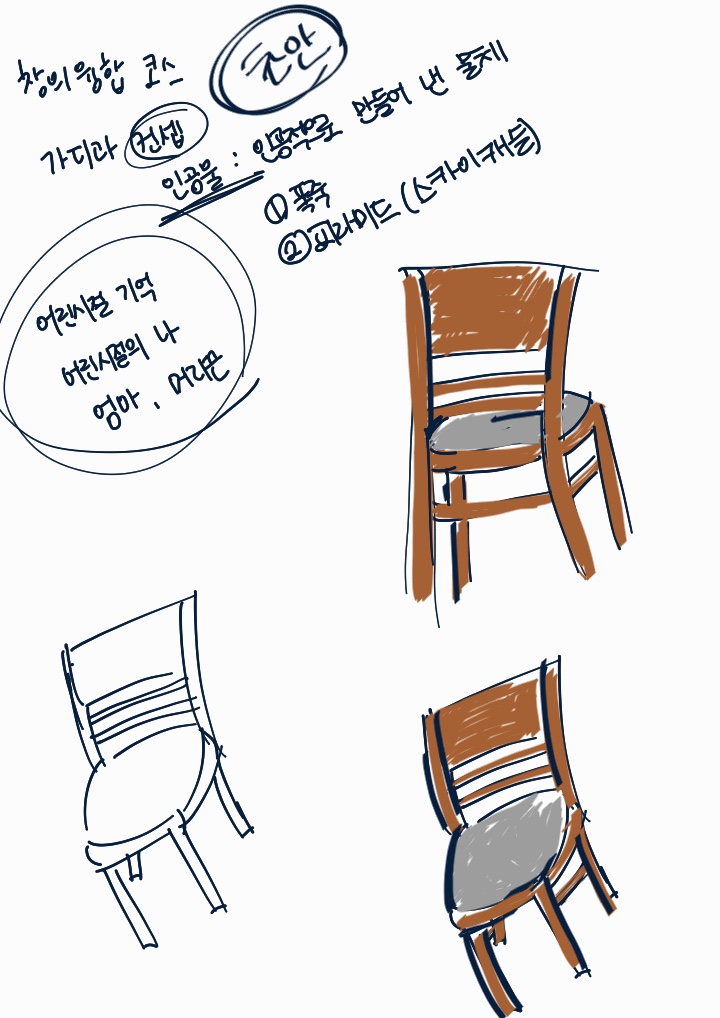 창의융합 코스
초안
가디라 컨셉
인공물 : 인공적으로 만들어 낸 물체
① 폭죽
② 피라미드 (스카이캐슬)
어린시절 기억
어린시절의 나
엄마, 머리끈